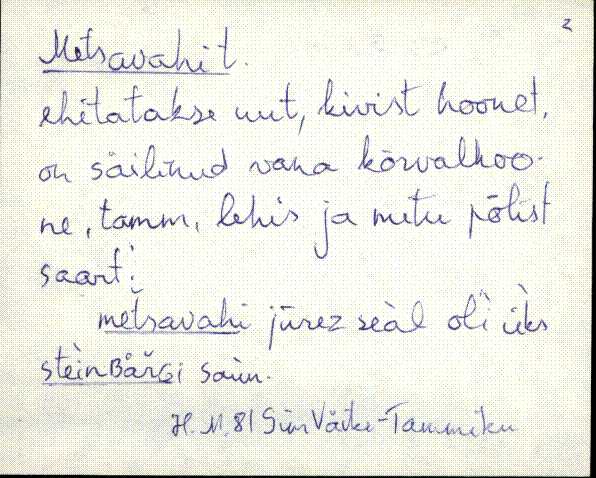 2
Metsavahi t.
ehitatakse uut, kivist hoonet,
on säilinud vana kõrvalhoo-
ne, tamm, lehis ja mitu põlist
saart!
metsavahi jürez seàl oli üks
steìnBåř̆Gi saùn.
H. M. 81 Sim Väike-Tammiku